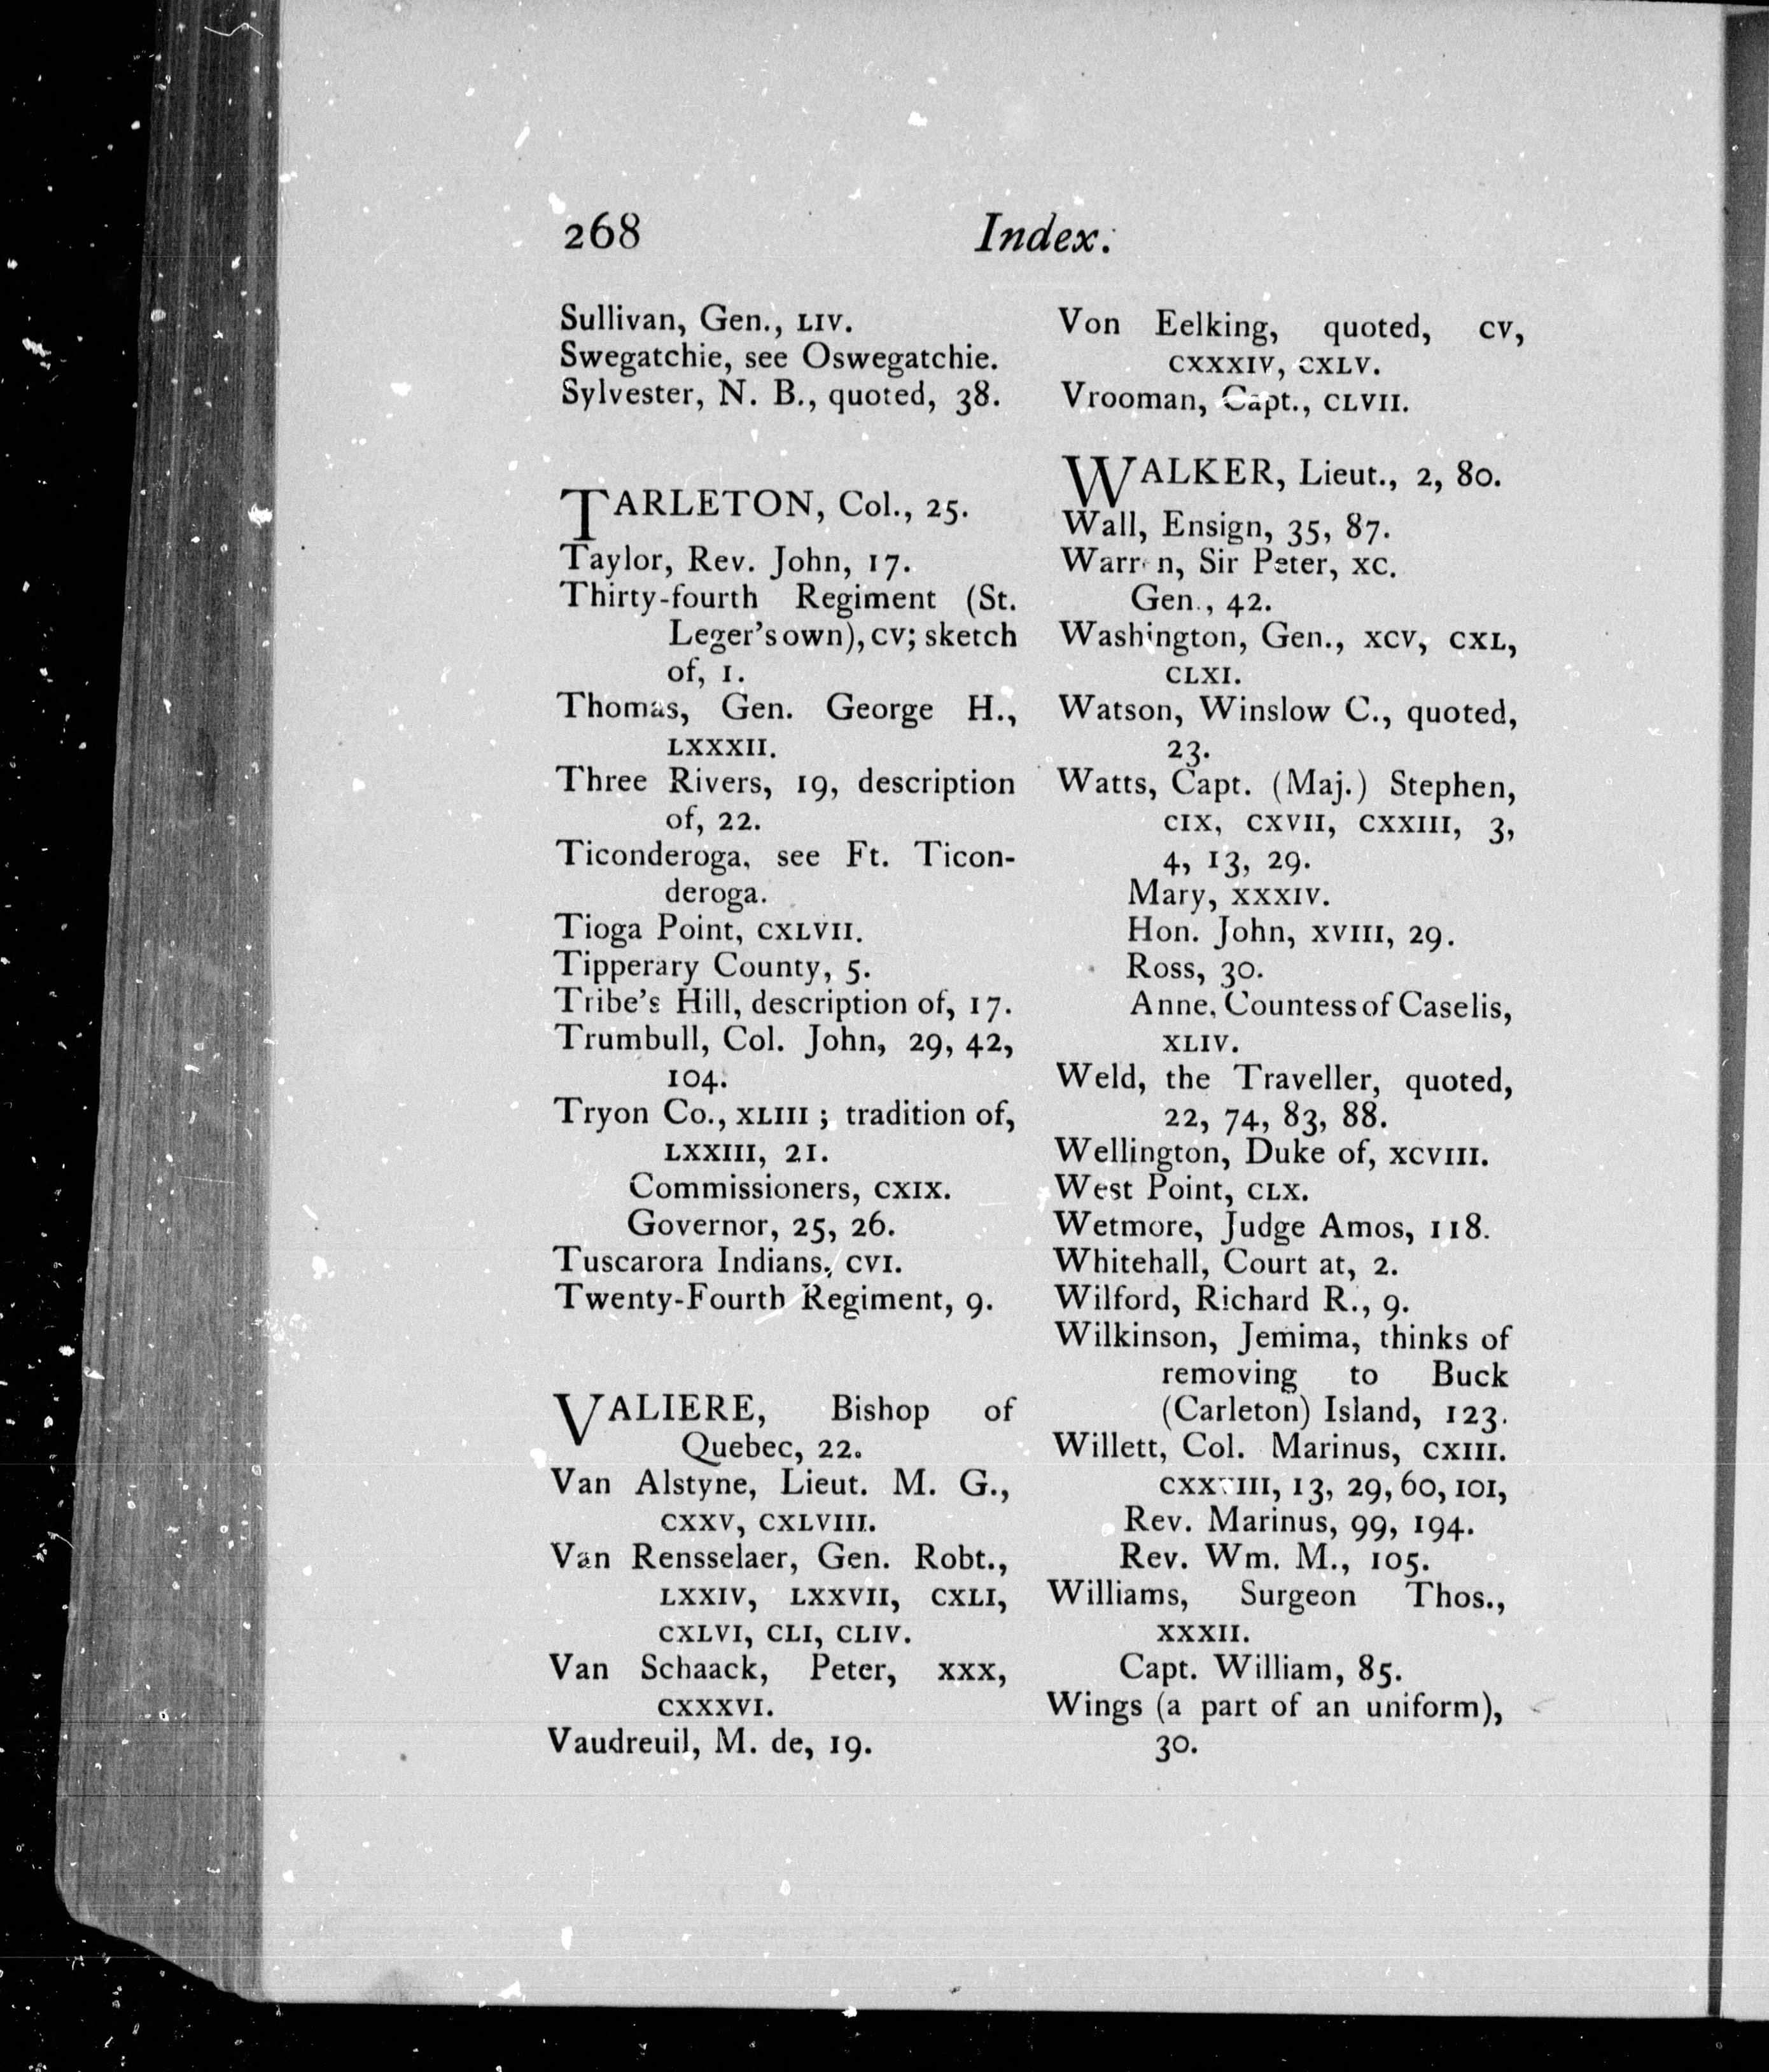 268 Index.
Sullivan, Gen., LIV.
Swegatchie, see Oswegatchie.
Sylvester, N. B., quoted, 38.
TARLETON, Col., 25.
Taylor, Rev. John, 17.
Thirty-fourth Regiment (St.
Leger's own), CV; sketch
of, 1.
Thomas, Gen. George H.,
LXXXII.
Three Rivers, 19, description
of, 22.
Ticonderoga, see Ft. Ticon-
deroga.
Tioga Point, CXLVII.
Tipperary County, 5.
Tribe's Hill, description of, 17.
Trumbull, Col. John, 29, 42,
104.
Tryon Co., XLIII; tradition of,
LXXIII, 21.
Commissioners, CXIX.
Governor, 25, 26.
Tuscarora Indians, CVI.
Twenty-Fourth Regiment, 9.
VALIERE, Bishop of
Quebec, 22.
Van Alstyne, Lieut. M. G.,
CXXV, CXLVIII.
Van Rensselaer, Gen. Robt.,
LXXIV, LXXVII, CXLI,
CXLVI, CLI, CLIV.
Van Schaack, Peter, XXX,
CXXXVI.
Vaudreuil, M. de, 19.
Von Eelking, quoted, CV,
CXXXIV, CXLV.
Vrooman, Capt., CLVII.
WALKER, Lieut., 2, 80.
Wall, Ensign, 35, 87.
Warren, Sir Peter, XC.
Gen., 42.
Washington, Gen., XCV, CXL,
CLXI.
Watson, Winslow C., quoted,
23.
Watts, Capt. (Maj.) Stephen,
CIX, CXVII, CXXIII, 3,
4, 13, 29.
Mary, XXXIV.
Hon. John, XVIII, 29.
Ross, 30.
Anne, Countess of Caselis,
XLIV.
Weld, the Traveller, quoted,
22, 74, 83, 88.
Wellington, Duke of, XCVIII.
West Point, CLX.
Wetmore, Judge Amos, 118.
Whitehall, Court at, 2.
Wilford, Richard R., 9.
Wilkinson, Jemima, thinks of
removing to Buck
(Carleton) Island, 123.
Willett, Col. Marinus, CXIII.
CXXVIII, 13, 29, 60, 101,
Rev. Marinus, 99, 194.
Rev. Wm. M., 105.
Williams, Surgeon Thos.,
XXXII.
Capt. William, 85.
Wings (a part of an uniform),
30.